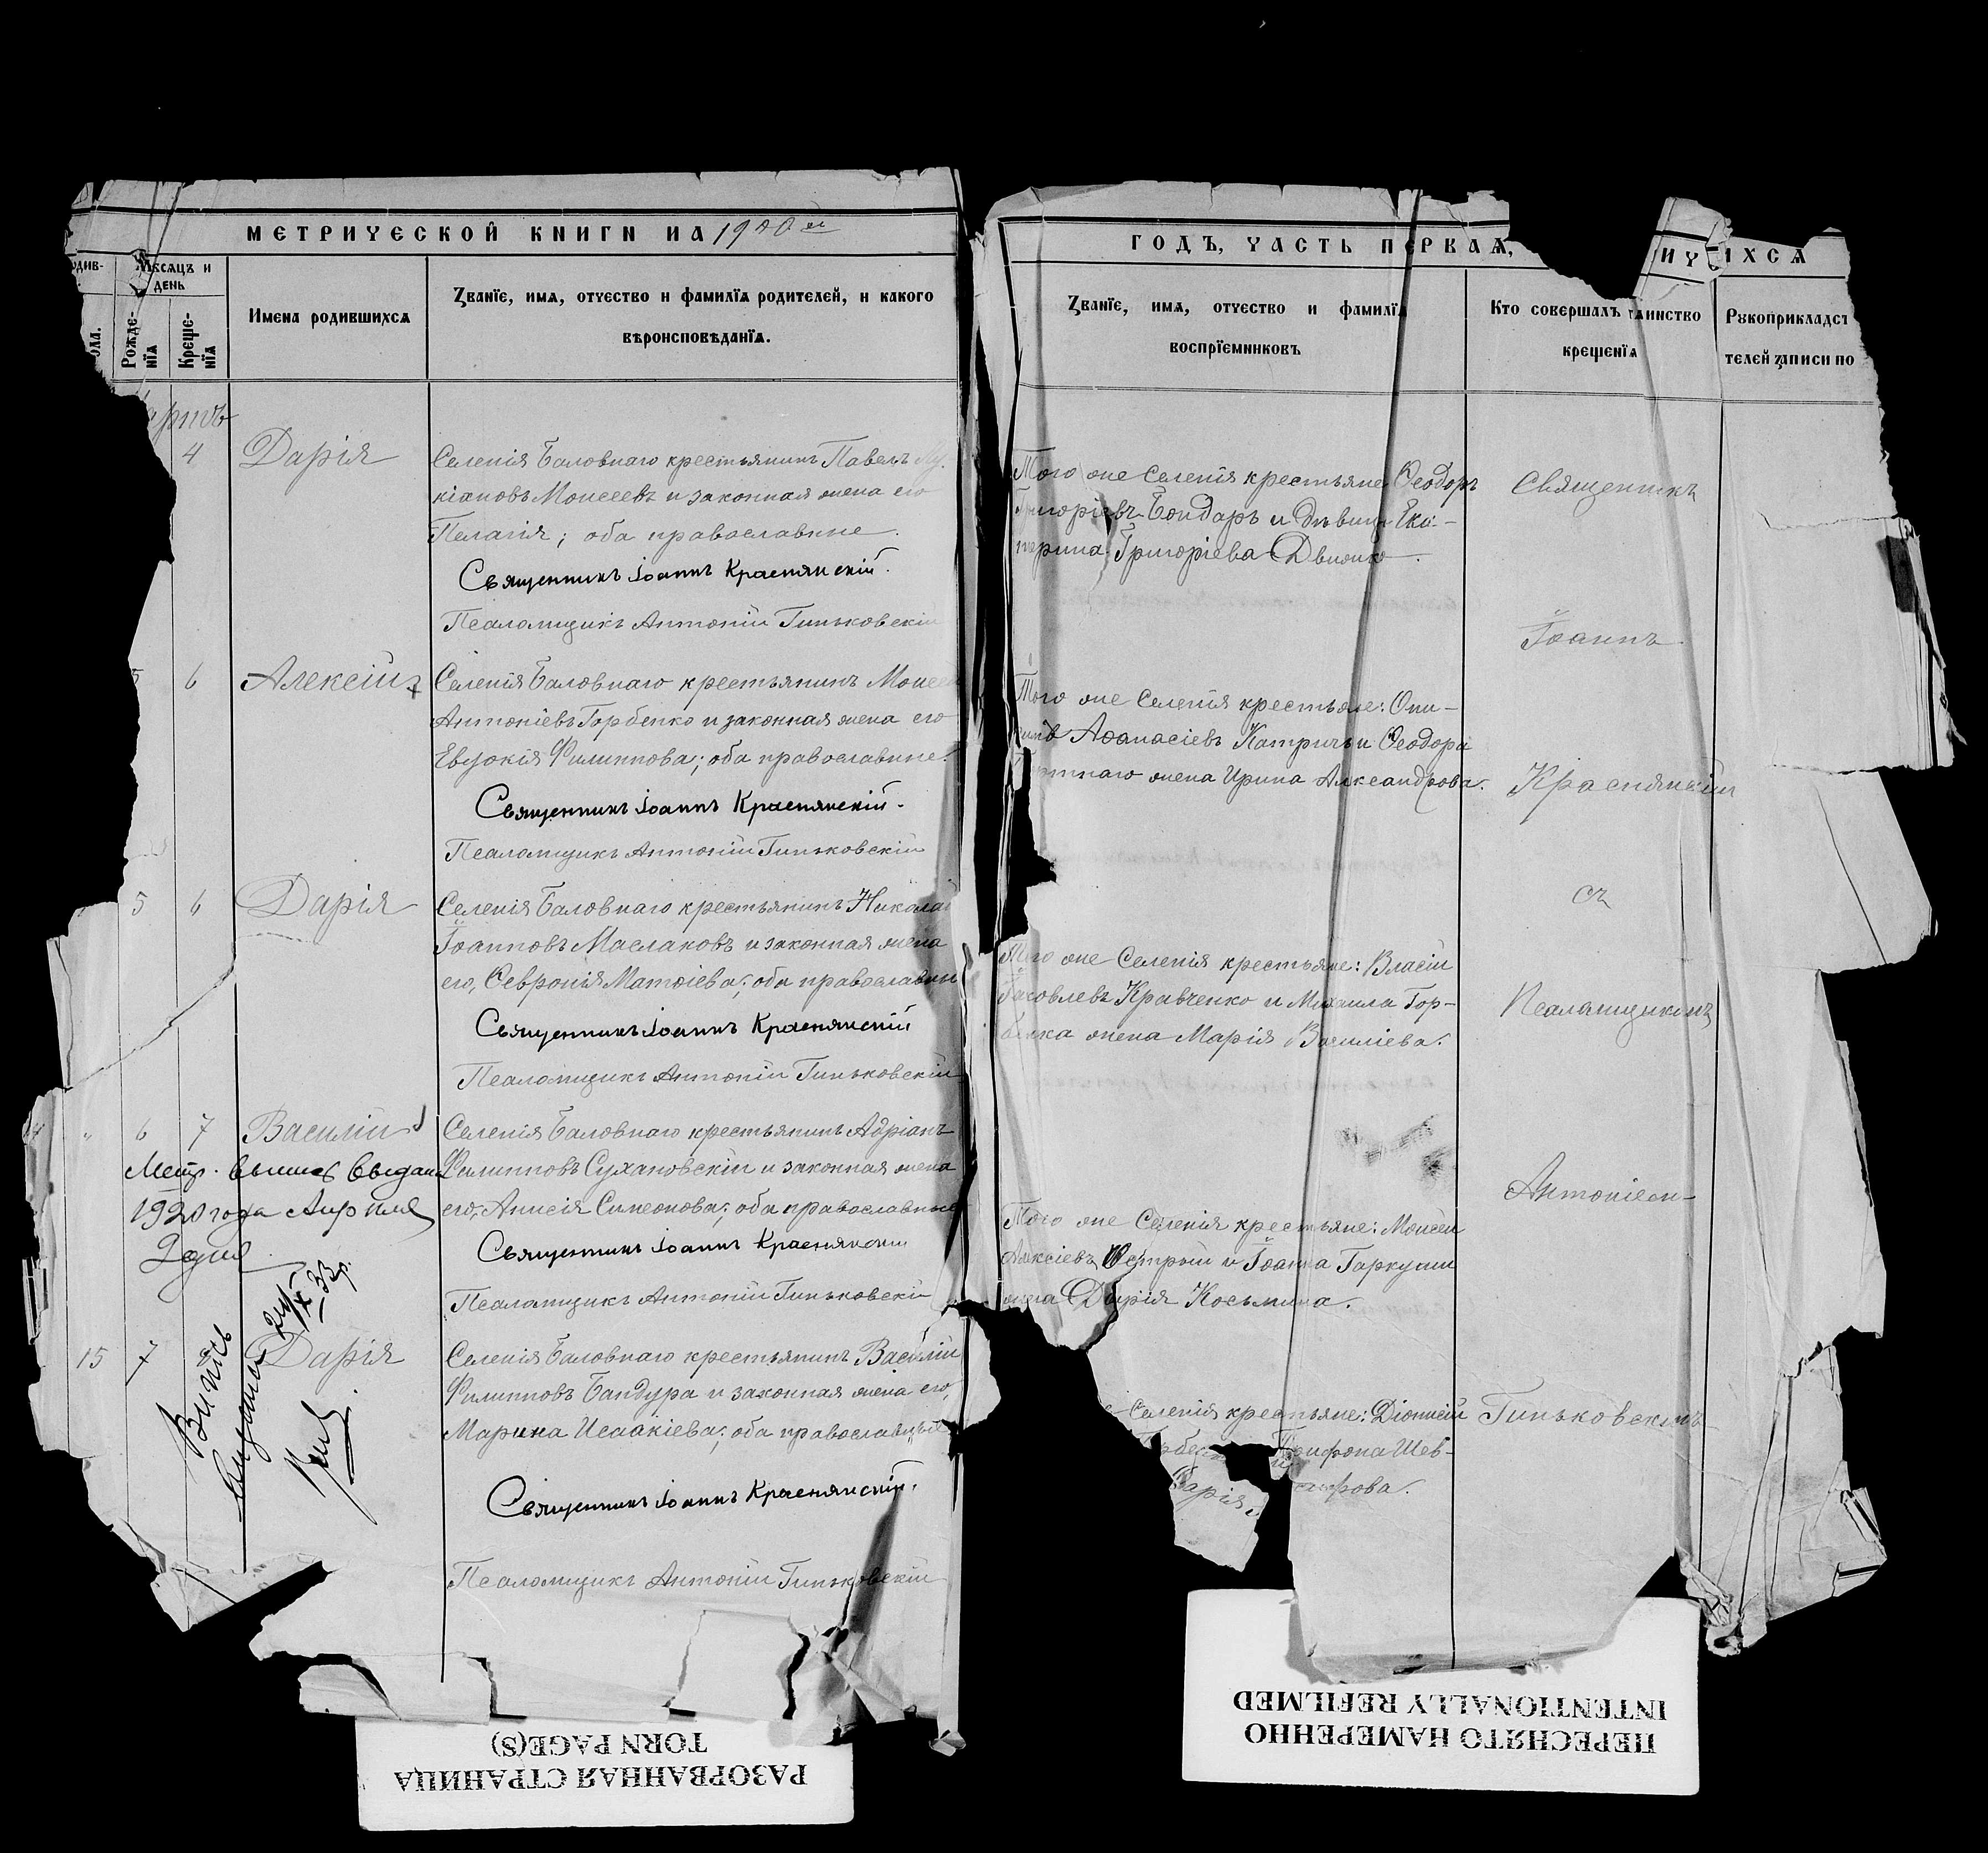 МЕТРИЧЕСКОЙ КНИГИ НА 1900 й
МѢСЯЦЪ И ДЕНЬ
Рожденія
Крещенія
Имена родившихся
Званіе, имя, отчество и фамилія родителей, и какого
вѣроисповѣданія.
4
Дарія
Селенія Баловнаго крестьянинъ Павелъ
кіановъ Моисеевъ и законная жена его
Пелагія; оба православные.
Священникъ Іоаннъ Краснянскій.
Псаломщикъ Антоній Гиньковскій
5 6
Алексій
Селенія Баловнаго крестьянинъ Моисей
Антоніевъ Горбенко и законная жена его
Евдокія Филиппова; оба православные.
Священникъ Іоаннъ Краснянскій.
Псаломщикъ Антоній Гиньковскій
5 6
Дарія
Селенія Баловнаго крестьянинъ Николай
Іоанновъ Маслаковъ и законная жена
его, Ѳевронія Матѳіева; оба православны
Священникъ Іоаннъ Краснянскій
Псаломщикъ Антоній Гиньковскій
" 6 7
Василій
Селенія Баловнаго крестьянинъ Адріанъ
Филипповъ Сухановскій и законная жена
его, Анисія Симеонова; оба православные
Священникъ Іоаннъ Краснянскій
Псаломщикъ Антоній Гиньковскій
Метр. выпись выдана
1920 года Апреля
2 дня
15 7
Дарія
Селенія Баловнаго крестьянинъ Василій
Филипповъ Бандура и законная жена его,
Марина Исаакіева; оба православные
Священникъ Іоаннъ Краснянскій.
Псаломщикъ Антоній Гиньковскій
Выпись
выдана
ГОДЪ, ЧАСТЬ ПЕРВАЯ,
ИХСЯ
Званіе, имя, отчество и фамилія
воспріемниковъ
Кто совершалъ таинство
крещенія
Рукоприкладст
телей записи по
Того же Селенія крестьяне Ѳеодоръ
Григоріевъ Бондарь и дѣвица Ека-
терина Григоріева
Того же Селенія крестьяне:
Аѳанасіевъ Катричъ и Ѳеодора
жена Ирина Александрова.
Того же Селенія крестьяне: Власій
Яковлевъ Кравченко и Михаила Гор-
бенка жена Марія Василіева.
Того же Селенія крестьяне: Моисей
Алексіевъ Острый и Іоанна Гаркуши
жена Дарія Косьмина.
Селенія крестьяне: Діонисій
Трифона Шев-
Дарія
Священникъ
Іоаннъ
Краснянскій
съ
Псаломщикомъ
Антоніем
Гиньковскимъ
РАЗОРВАННАЯ СТРАНИЦА
TORN PAGE(S)
ПЕРЕСНЯТО НАМЕРЕННО
INTENTIONALLY REFILMED